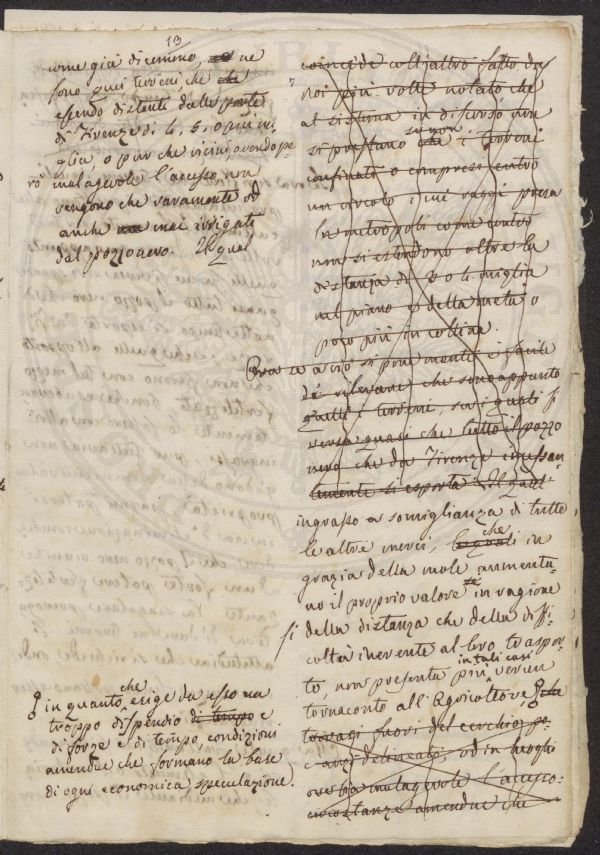 13
come già dicemmo, ne
sono quei terreni, che che
essendo distanti dalle porte
di Firenze di 4, 5, o più mi-
glia, o pur che vicini, avendo pe-
rò malagevole l'accesso, non
vengono che raramente od
anche mai irrigati
dal pozzo nero. Il qual
coincide coll'altro fatto da
noi più volte notato che
al sistema in discorso non
si prestano che se non i terreni
confinati o compresi entro
un circolo i cui raggi presa
la metropoli come centro
non si estendono oltre la
distanza di 3 o 4 miglia
nel piano e della metà o
poco più in collina.
Ora se a ciò si pone mente è facile
di rilevare che sono appunto
quelli i terreni, su i quali si
versa quasi che tutto il pozzo
nero che da Firenze incessan-
temente si esporta. Il qual
ingrasso a somiglianza di tutte
le altre merci, che in
grazia della mole aumenta-
no il proprio valore in ragione
della distanza che della diffi-
coltà inerente al loro traspor-
to, non presenta in tali casi più verun
tornaconto all'Agricoltore,
fuori del cerchio po-
c'anzi delineato, od in luoghi
ove ha malagevole l'accesso:
circostanze amendue che
in quanto che esige da esso un
troppo dispendio di tempo e
di forze e di tempo, condizioni
amendue che formano la base
di ogni economica speculazione.